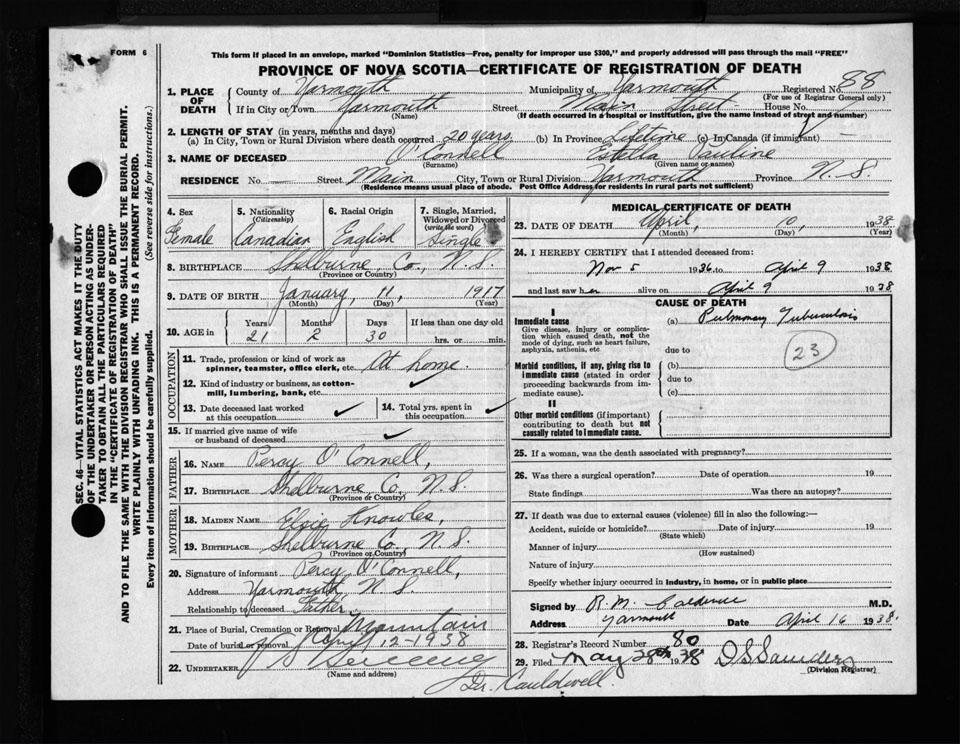 FORM 6
This form if placed in an envelope, marked "Dominion Statistics—Free, penalty for improper use $300," and properly addressed will pass through the mail "FREE"
PROVINCE OF NOVA SCOTIA—CERTIFICATE OF REGISTRATION OF DEATH
SEC. 46—VITAL STATISTICS ACT MAKES IT THE DUTY
OF THE UNDERTAKER OR PERSON ACTING AS UNDER-
TAKER TO OBTAIN ALL THE PARTICULARS REQUIRED
IN THE "CERTIFICATE OF REGISTRATION OF DEATH"
AND TO FILE THE SAME WITH THE DIVISION REGISTRAR WHO SHALL ISSUE THE BURIAL PERMIT.
WRITE PLAINLY WITH UNFADING INK. THIS IS A PERMANENT RECORD.
Every item of information should be carefully supplied. (See reverse side for instructions.)
1. PLACE OF DEATH County of Yarmouth Municipality of Yarmouth Registered No. 88
(For use of Registrar General only)
If in City or Town Yarmouth Street Main Street House No.
(Name) (If death occurred in a hospital or institution, give the name instead of street and number)
2. LENGTH OF STAY (in years, months and days)
(a) In City, Town or Rural Division where death occurred 20 years (b) In Province Lifetime (c) In Canada (if immigrant) —
3. NAME OF DECEASED O'Connell Estella Pauline
(Surname) (Given name or names)
RESIDENCE No. — Street Main City, Town or Rural Division Yarmouth Province N.S.
(Residence means usual place of abode. Post Office Address for residents in rural parts not sufficient)
4. Sex 5. Nationality (Citizenship) 6. Racial Origin 7. Single, Married, Widowed or Divorced (write the word)
Female Canadian English Single
8. BIRTHPLACE Shelburne Co., N.S.
(Province or Country)
9. DATE OF BIRTH January, 11, 1917
(Month) (Day) (Year)
10. AGE in Years Months Days If less than one day old
21 2 30 hrs. or min.
OCCUPATION
11. Trade, profession or kind of work as spinner, teamster, office clerk, etc. At home.
12. Kind of industry or business, as cotton-mill, lumbering, bank, etc. ✓
13. Date deceased last worked at this occupation ✓ 14. Total yrs. spent in this occupation ✓
15. If married give name of wife or husband of deceased ✓
FATHER
16. NAME Percy O'Connell,
17. BIRTHPLACE Shelburne Co. N.S.
(Province or Country)
MOTHER
18. MAIDEN NAME Elsie Knowles,
19. BIRTHPLACE Shelburne Co. N.S.
(Province or Country)
20. Signature of informant Percy O'Connell,
Address Yarmouth N.S.
Relationship to deceased Father.
21. Place of Burial, Cremation or Removal Mountain
Date of burial or removal April 12-1938
22. UNDERTAKER
(Name and address)
Dr. Cauldwell.
MEDICAL CERTIFICATE OF DEATH
23. DATE OF DEATH April, 1938
(Month) (Day) (Year)
24. I HEREBY CERTIFY that I attended deceased from:
Nov 5 1936 to April 9 1938
and last saw her alive on April 9 1938
CAUSE OF DEATH
I
Immediate cause (a) Pulmonary Tuberculosis
Give disease, injury or complication which caused death, not the mode of dying, such as heart failure, asphyxia, asthenia, etc.
23
due to
Morbid conditions, if any, giving rise to immediate cause (stated in order proceeding backwards from immediate cause). (b)
due to
(c)
II
Other morbid conditions (if important) contributing to death but not causally related to immediate cause.
25. If a woman, was the death associated with pregnancy?
26. Was there a surgical operation? Date of operation 19
State findings Was there an autopsy?
27. If death was due to external causes (violence) fill in also the following:—
Accident, suicide or homicide? Date of injury 19
(State which)
Manner of injury
(How sustained)
Nature of injury
Specify whether injury occurred in industry, in home, or in public place
Signed by R.M. M.D.
Address Yarmouth Date April 16 1938.
28. Registrar's Record Number 80
29. Filed May 28th 1938 D S Saunders
(Division Registrar)